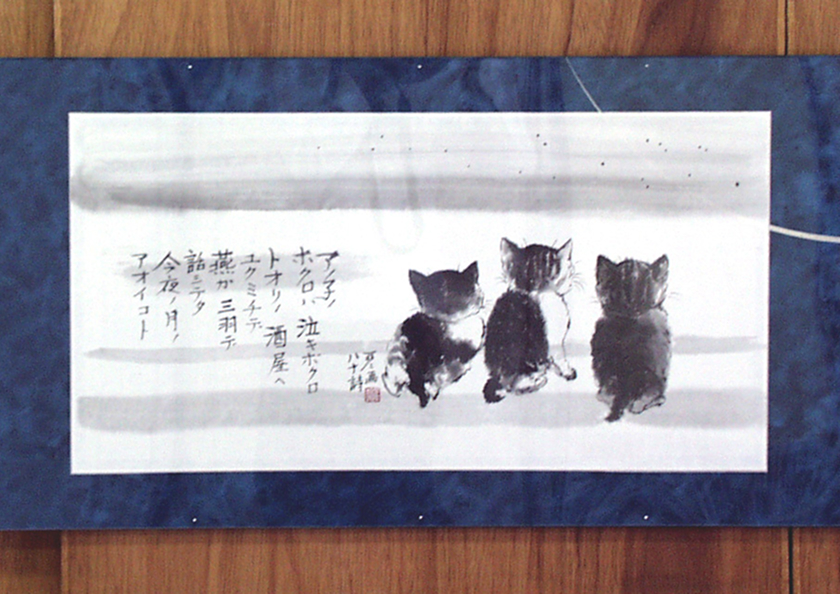 アノ子ノ
ホクロハ 泣キボクロ
トオリノ 酒屋ヘ
ユクミチデ
燕ガ 三羽デ
話シテタ
今夜ノ月ノ
アオイコト
画
八十詩